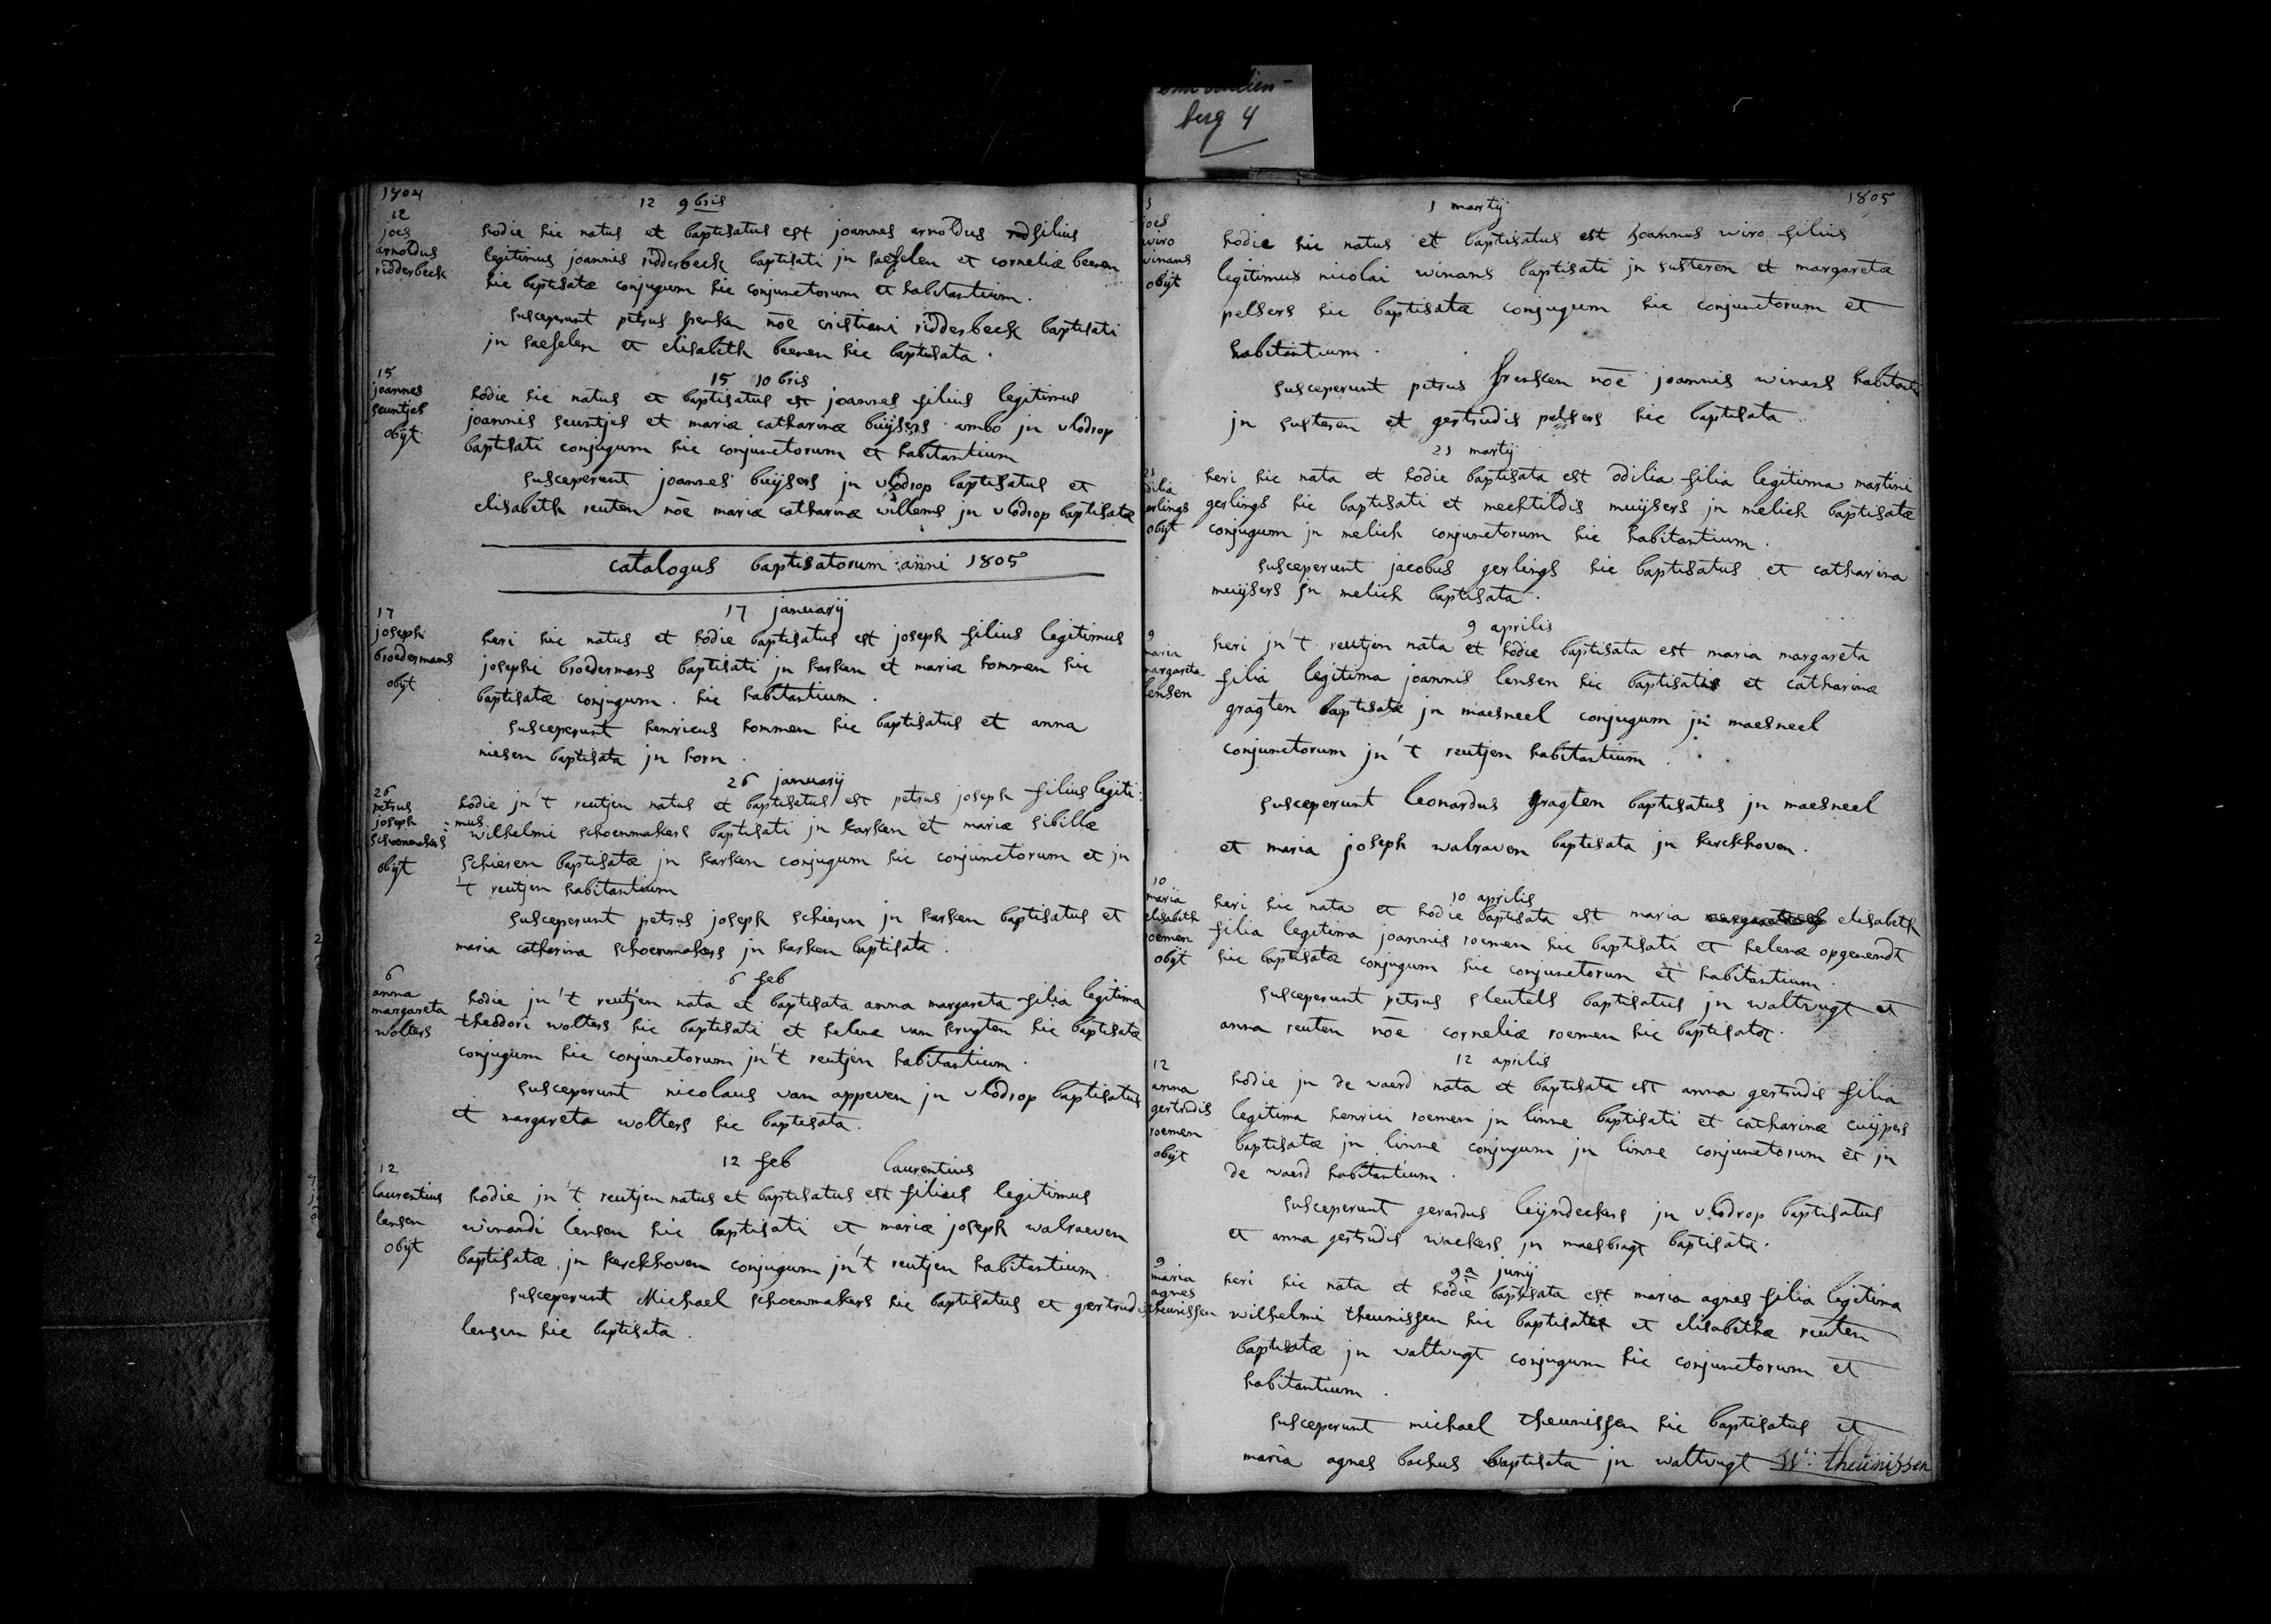 berg 4
1804
12 9bris
12
joes
arnoldus
ridderbeek
hodie hic natus et baptisatus est joannes arnoldus filius
legitimus joannis ridderbeek baptisati jn saefelen et corneliæ beenen
hic baptisatæ conjugum hic conjunctorum et habitantium.
susceperunt petrus frenken nōe cristiani ridderbeek baptisati
jn saefelen et elisabeth beenen hic baptisata.
15 10bris
15
joannes
seuntjes
obijt
hodie hic natus et baptisatus est joannes filius legitimus
joannis seuntjes et mariæ catharinæ buijsers ambo jn vlodrop
baptisati conjugum hic conjunctorum et habitantium
susceperunt joannes buijsers jn vlodrop baptisatus et
elisabeth reuten nōe mariæ catharinæ willems jn vlodrop baptisatæ
catalogus baptisatorum anni 1805
17 januarij
17
joseph
broedermans
obijt
heri hic natus et hodie baptisatus est joseph filius legitimus
josephi broedermans baptisati jn karken et mariæ hommen hic
baptisatæ conjugum. hic habitantium.
susceperunt henricus hommen hic baptisatus et anna
niesen baptisata jn horn.
26 januarij
26
petrus
joseph
schoenmakers
obijt
hodie jn't reutjen natus et baptisatus est petrus joseph filius legiti:
:mus. wilhelmi schoenmakers baptisati jn karken et mariæ sibillæ
schieren baptisatæ jn karken conjugum hic conjunctorum et jn
't reutjen habitantium
susceperunt petrus joseph schieren jn karken baptisatus et
maria catharina schoenmakers jn karken baptisata.
6 feb
6
anna
margareta
wolters
hodie jn't reutjen nata et baptisata anna margareta filia legitima
theodori wolters hic baptisati et helenæ van krugten hic baptisatæ
conjugum hic conjunctorum jn't reutjen habitantium.
susceperunt nicolaus van appeven jn vlodrop baptisatus
et margareta wolters hic baptisata.
12 feb laurentius
12
laurentius
lensen
obijt
hodie jn't reutjen natus et baptisatus est filius legitimus
winandi lensen hic baptisati et mariæ joseph walraeven
baptisatæ jn kerckhoven conjugum jn't reutjen habitantium.
susceperunt Michael schoenmakers hic baptisatus et gertrudis
lensen hic baptisata.
1805
1 martij
joes
wiro
winans
obijt
hodie hic natus et baptisatus est joannes wiro filius
legitimus nicolai winans baptisati jn susteren et margaretæ
pelsers hic baptisatæ conjugum hic conjunctorum et
habitantium.
susceperunt petrus frencken nōe joannis winans habitantis
jn susteren et gertrudis pelsers hic baptisata.
21 martij
21
odilia
gerlings
obijt
heri hic nata et hodie baptisata est odilia filia legitima martini
gerlings hic baptisati et mechtildis muijsers jn melich baptisatæ
conjugum jn melich conjunctorum hic habitantium.
susceperunt jacobus gerlings hic baptisatus et catharina
muijsers jn melich baptisata.
9 aprilis
9
maria
margareta
lensen
heri jn't reutjen nata et hodie baptisata est maria margareta
filia legitima joannis lensen hic baptisatis et catharinæ
gragten baptisatæ jn maesneel conjugum jn maesneel
conjunctorum jn't reutjen habitantium.
susceperunt leonardus gragten baptisatus jn maesneel
et maria joseph walraven baptisata jn kerckhoven.
10 aprilis
10
maria
elisabeth
roemen
obijt
heri hic nata et hodie baptisata est maria elisabeth
filia legitima joannis roemen hic baptisati et helenæ opgenendt
hic baptisatæ conjugum hic conjunctorum et habitantium.
susceperunt petrus sleutels baptisatus jn waltvugt et
anna reuten nōe corneliæ roemen hic baptisatæ.
12 aprilis
12
anna
gertrudis
roemen
obijt
hodie jn de waerd nata et baptisata est anna gertrudis filia
legitima henrici roemen jn linne baptisati et catharinæ cuijpers
baptisatæ jn linne conjugum jn linne conjunctorum et jn
de waerd habitantium.
susceperunt gerardus leijndeckers jn vlodrop baptisatus
et anna gertrudis wackers jn maesbragt baptisata.
9a junij
9
maria
agnes
theunissen
heri hic nata et hodie baptisata est maria agnes filia legitima
wilhelmi theunissen hic baptisatis et elisabethæ reuten
baptisatæ jn waltvugt conjugum hic conjunctorum et
habitantium.
susceperunt michael theunissen hic baptisatus et
maria agnes backus baptisata jn waltvugt W: theünissen